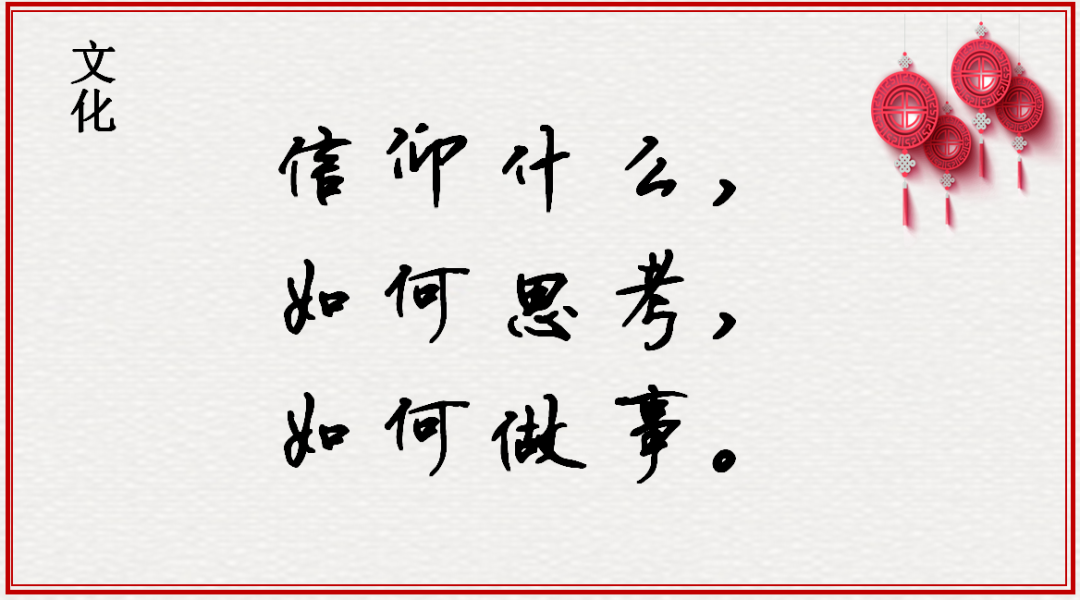 文化
信仰什么，
如何思考，
如何做事。